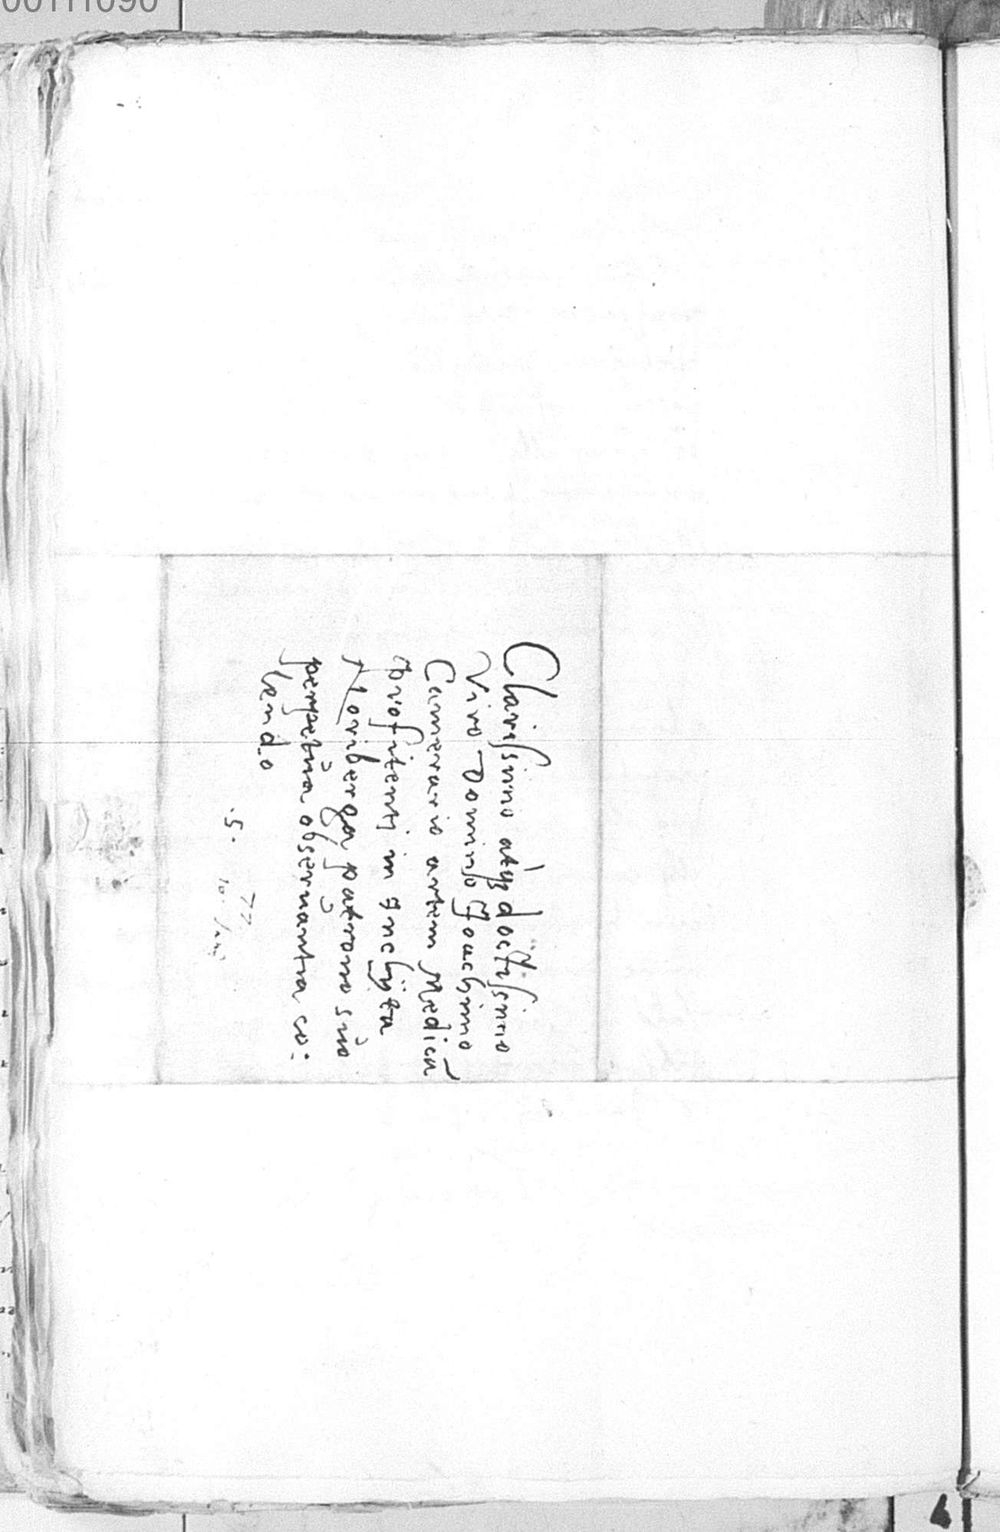 00111090
Clarissimo atq3 doctissimo
Viro Domino Joachimo
Camerario artem Medicā
profitenti in Inclyta
Noriberga patrono sùo
perpetùa obseruantia co:
lendo
.S.
77